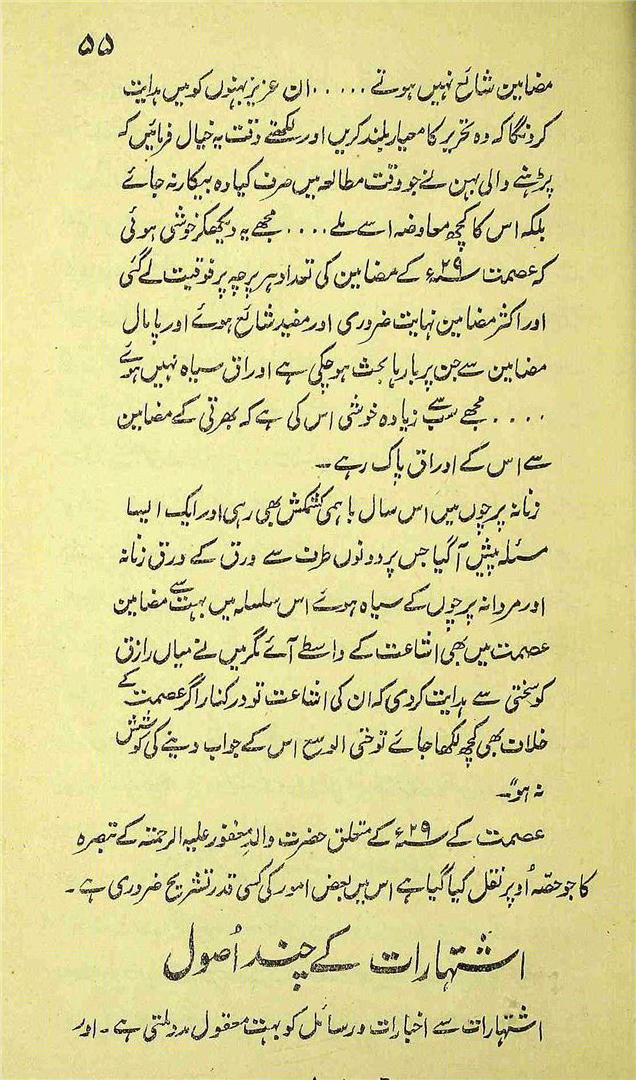 ۵۵
مضامین شائع نہیں ہوتے ..... ان عزیز بہنوں کو میں ہدایت
کرونگا کہ وہ تحریر کا معیار بلند کریں اور لکھتے وقت یہ خیال فرمائیں کہ
پڑہنے والی بہن نے جو وقت مطالعہ میں صرف کیا وہ بیکار نہ جائے
بلکہ اس کا کچھ معاوضہ اسے ملے .... مجھے یہ دیکھکر خوشی ہوئی
کہ عصمت ۲۹ء کے مضامین کی تعداد ہر پرچہ پر فوقیت لے گئی
اور اکثر مضامین نہایت ضروری اور مفید شائع ہوئے اور پامال
مضامین سے جن پر بارہا بحث ہوچکی ہے اوراق سیاہ نہیں ہوئے
.... مجھے سب سے زیادہ خوشی اس کی ہے کہ بھرتی کے مضامین
سے اس کے اوراق پاک رہے۔
زنانہ پرچوں میں اس سال باہمی کشمکش بھی رہی اور ایک ایسا
مسئلہ پیش آگیا جس پر دونوں طرف سے ورق کے ورق زنانہ
اور مردانہ پرچوں کے سیاہ ہوئے اس سلسلہ میں بہت سے مضامین
عصمت میں بھی اشاعت کے واسطے آئے مگر میں نے میاں رازق
کو سختی سے ہدایت کردی کہ ان کی اشاعت تو درکنار اگر عصمت کے
خلاف بھی کچھ لکھا جائے تو حتی الوسع اس کے جواب دینے کی کوشش
نہ ہو"۔
عصمت کے ۲۹ء کے متعلق حضرت والدِ مغفور علیہ الرحمتہ کے تبصرہ
کا جو حصّہ اُوپر نقل کیا گیا ہے اس میں بعض امور کی کسی قدر تشریح ضروری ہے۔
اشتہارات کے چند اُصول
اشتہارات سے اخبارات و رسائل کو بہت معقول مدد ملتی ہے۔ اور